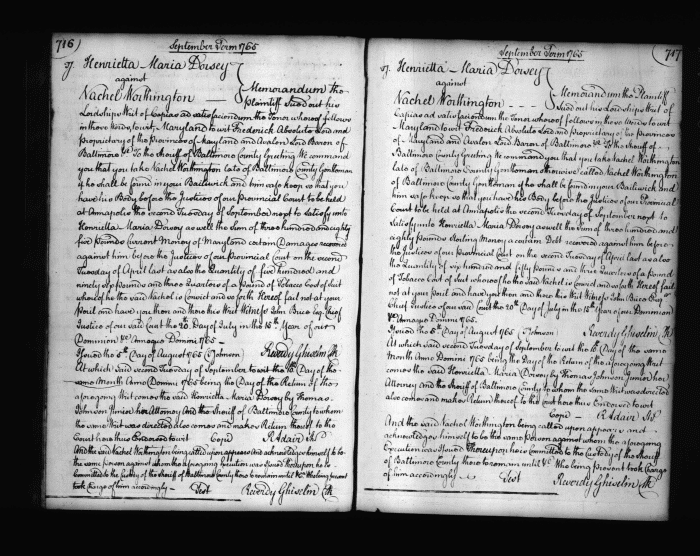 716)
September Term 1765
37. Henrietta Maria Dorsey
against
Nachel Worthington
Memorandum the
plaintiff Sued out his
Lordships Writ of Capias ad satisfaciendum the Tenor whereof follows
in these Words, towit, Maryland towit Frederick Absolute Lord and
Proprietary of the Provinces of Maryland and Avalon Lord Baron of
Baltimore &c. To the Sheriff of Baltimore County Greeting We command
you that you take Nachel Worthington late of Baltimore County Gentleman
if he shall be found in your Bailiwick and him safe keep so that you
have his Body before the Justices of our Provincial Court to be held
at Annapolis the second Tuesday of September next to Satisfy unto
Henrietta Maria Dorsey as well the Sum of three hundred and eighty
five Pounds Current Money of Maryland certain Damages recovered
against him before the Justices of our Provincial Court on the second
Tuesday of April last as also the Quantity of five hundred and
ninety six Pounds and three Quarters of a Pound of Tobacco Cost of suit
whereof he the said Nachel is Convict and so forth Hereof fail not at your
Peril and have you then and there this Writ Witness John Brice Esq. Chief
Justice of our said Court the 20th Day of July in the 15th Year of our
Dominion &c Annoque Domini 1765.
Issued the 6th Day of August 1765 (Johnson) Reverdy Ghiselin Clk
At which said second Tuesday of September to wit the 10th Day of the
same Month Anno Domini 1765 being the Day of the Return of the
aforegoing Writ comes the said Henrietta Maria Dorsey by Thomas
Johnson Junior her Attorney And the Sheriff of Baltimore County to whom
the same Writ was directed also comes and makes Return thereof to the
Court here thus Endorsed towit Cepi R Adair Shf
And the said Nachel Worthington being called upon appears and acknowledges himself to be
the same Person against whom the aforegoing Execution was Issued Thereupon he is
Committed to the Custody of the Sheriff of Baltimore County there to remain until &c Who being present
took Charge of him accordingly. Test Reverdy Ghiselin Clk
717
September Term 1765
37. Henrietta Maria Dorsey
against
Nachel Worthington
Memorandum the Plaintiff
Sued out his Lordships Writ of
Capias ad satisfaciendum the Tenor whereof follows in these Words to wit
Maryland to wit Frederick Absolute Lord and Proprietary of the Provinces
of Maryland and Avalon Lord Baron of Baltimore &c. To the Sheriff of
Baltimore County Greeting We command you that you take Nachel Worthington
late of Baltimore County Gentleman otherwise called Nachel Worthington
of Baltimore County Gentleman if he shall be found in your Bailiwick and
him safe keep so that you have his Body before the Justices of our Provincial
Court to be held at Annapolis the second Tuesday of September next to
Satisfy unto Henrietta Maria Dorsey as well the sum of three hundred and
eighty Pounds Sterling Money a certain Debt recovered against him before
the Justices of our Provincial Court on the second Tuesday of April last as also
the Quantity of six hundred and fifty Pounds and three Quarters of a pound
of Tobacco Cost of Suit whereof he the said Nachel is Convict and so forth Hereof fail
not at your Peril and have you then and there this Writ Witness John Brice Esqr
Chief Justice of our said Court the 20th Day of July in the 15th Year of our Dominion
&c Annoque Domini 1765.
Issued the 6th Day of August 1765 (Johnson) Reverdy Ghiselin Clk
At which said second Tuesday of September to wit the 10th Day of the same
Month Anno Domini 1765 being the Day of the Return of the aforegoing Writ
comes the said Henrietta Maria Dorsey by Thomas Johnson Junior her
Attorney and the Sheriff of Baltimore County to whom the same Writ was directed
also comes and makes Return thereof to the Court here thus Endorsed to wit
Cepi R Adair Shf
And the said Nachel Worthington being called upon appears and
acknowledges himself to be the same Person against whom the aforegoing
Execution was Issued Thereupon he is Committed to the Custody of the Sheriff
of Baltimore County there to remain until &c Who being present took Charge
of him accordingly. Test Reverdy Ghiselin Clk